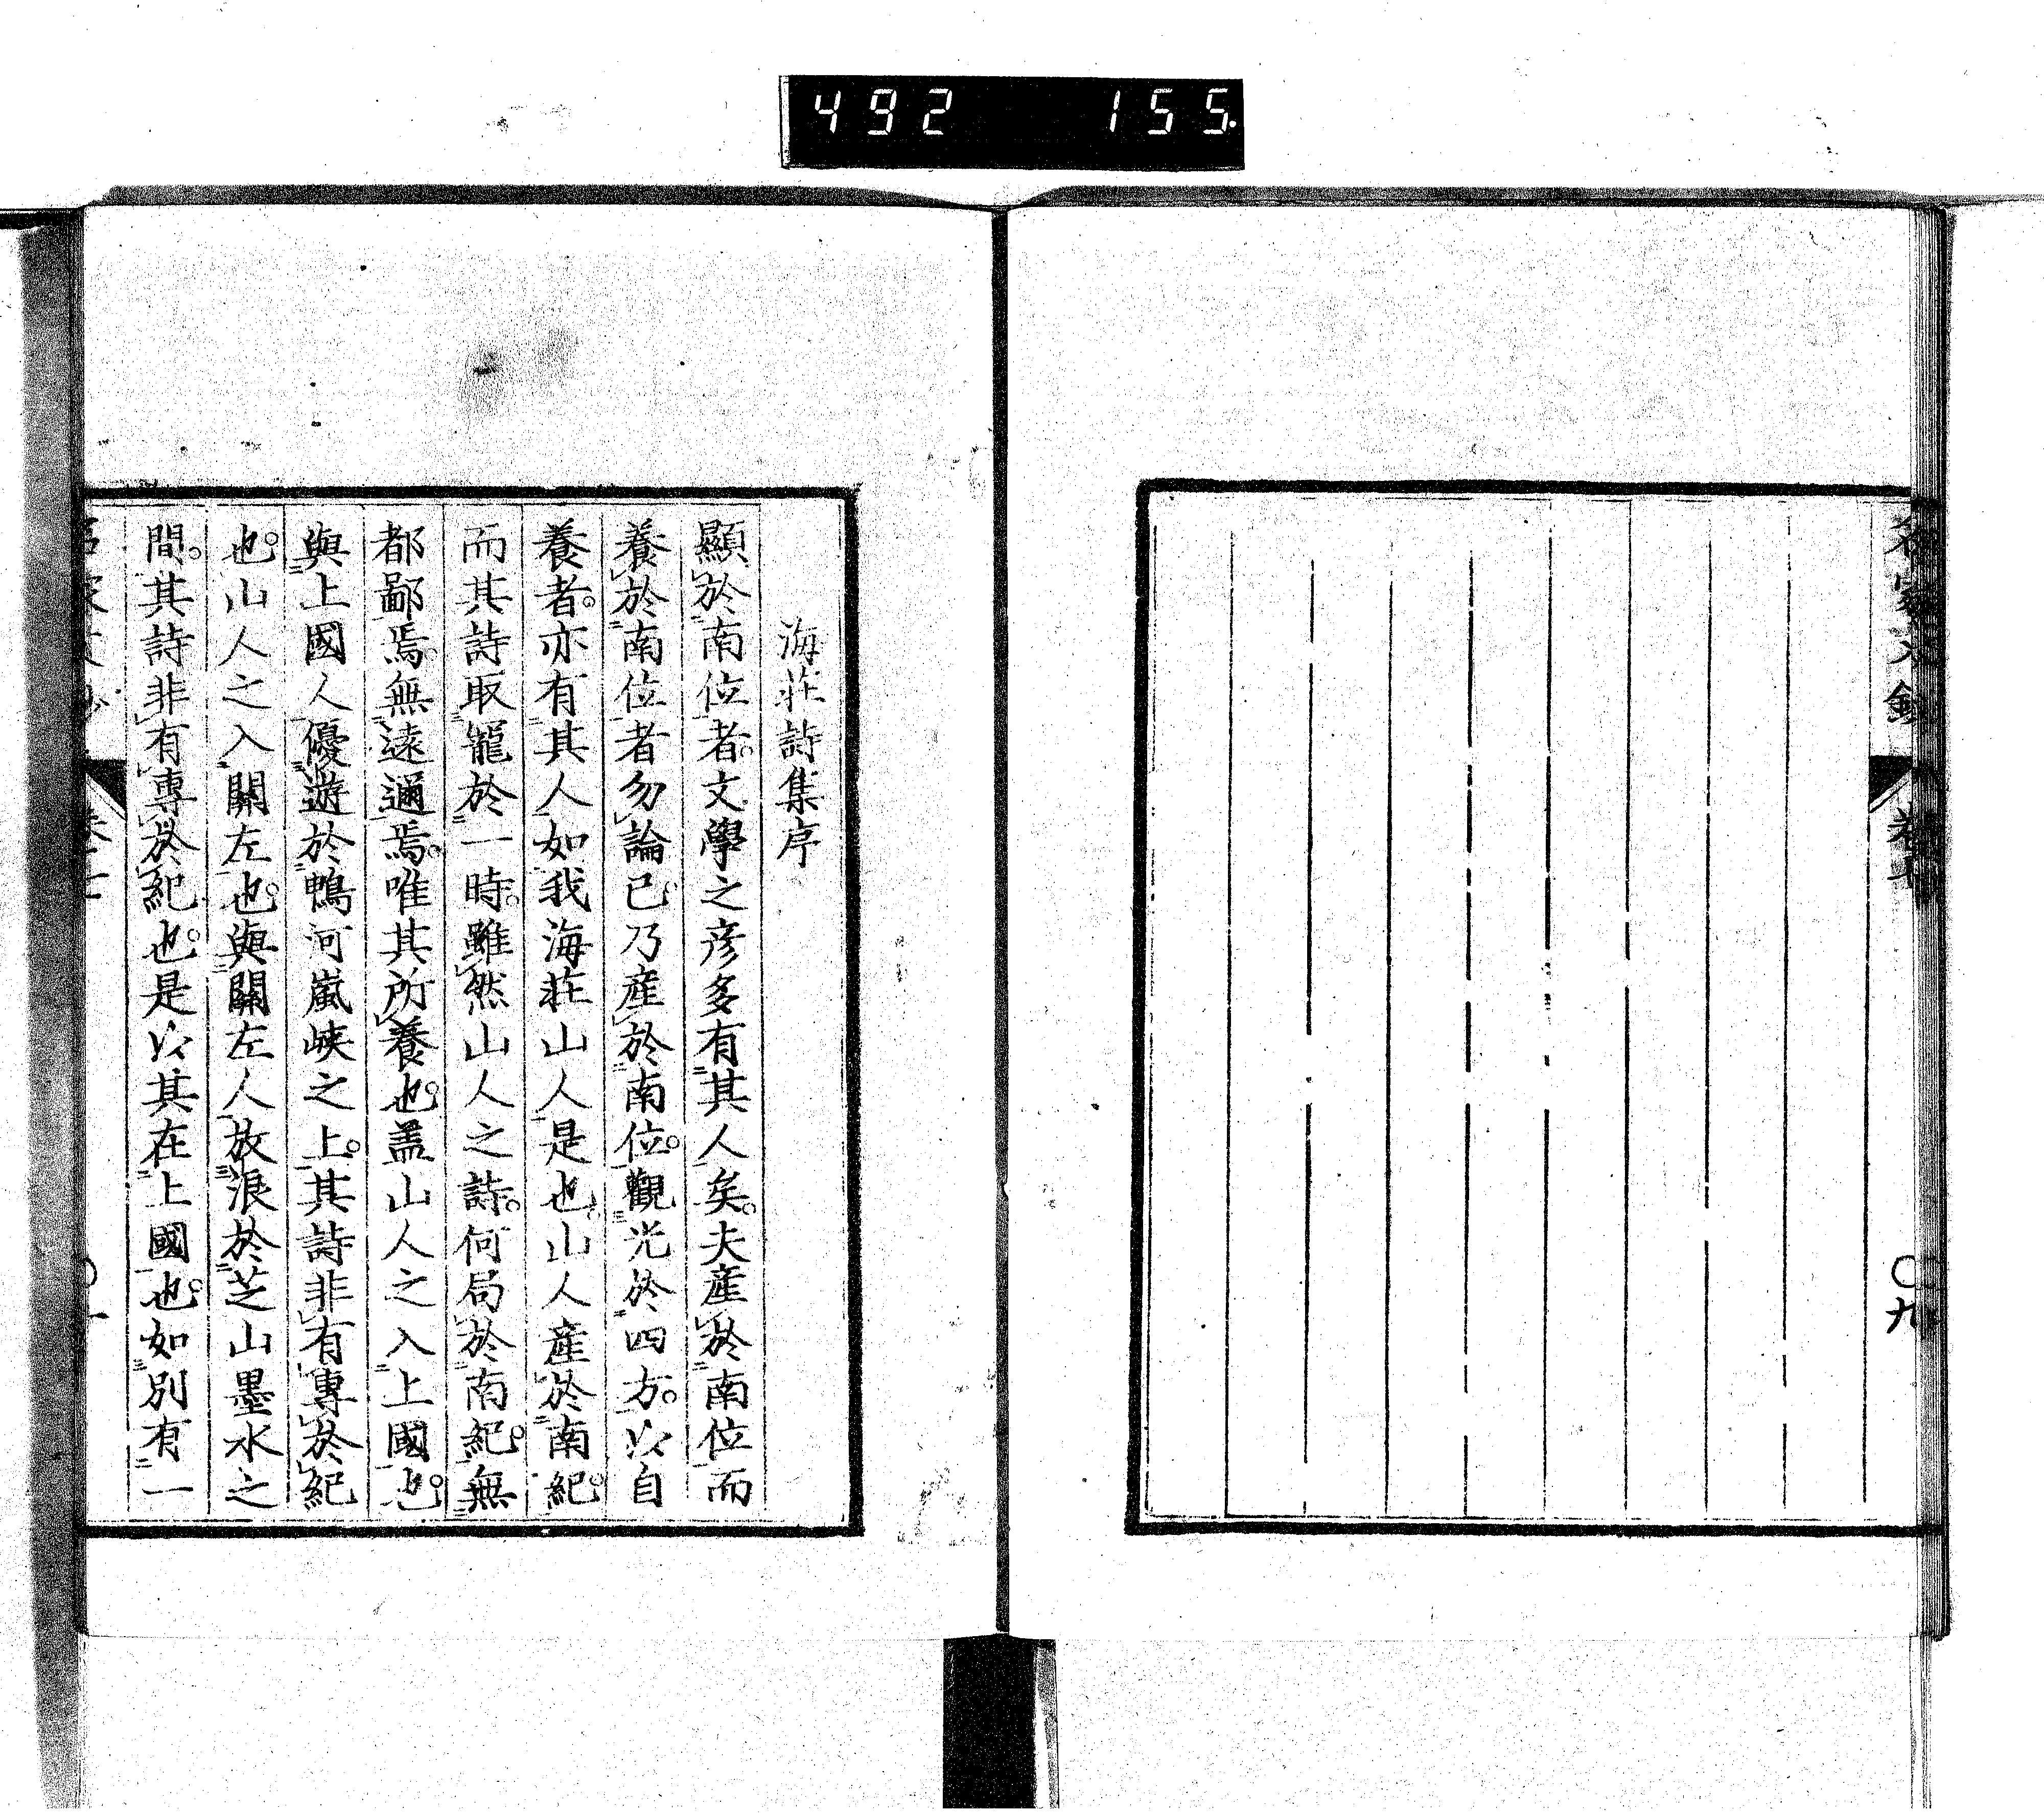 492 155.
九
海莊詩集序
顯於南位者。文學之彦多有其人矣。夫產於南位而
養於南位者勿論已。乃產於南位。觀光於四方。以自
養者。亦有其人如我海莊山人是也。山人產於南紀。
而其詩取寵於一時。雖然山人之詩。何局於南紀。無
都鄙焉。無遠邇焉。唯其所養也。蓋山人之入上國也。
與上國人優遊於鴨河嵐峽之上。其詩非有專於紀
也。山人之入關左也。與關左人放浪於芝山墨水之
間。其詩非有專於紀也。是以其在上國也。如別有一